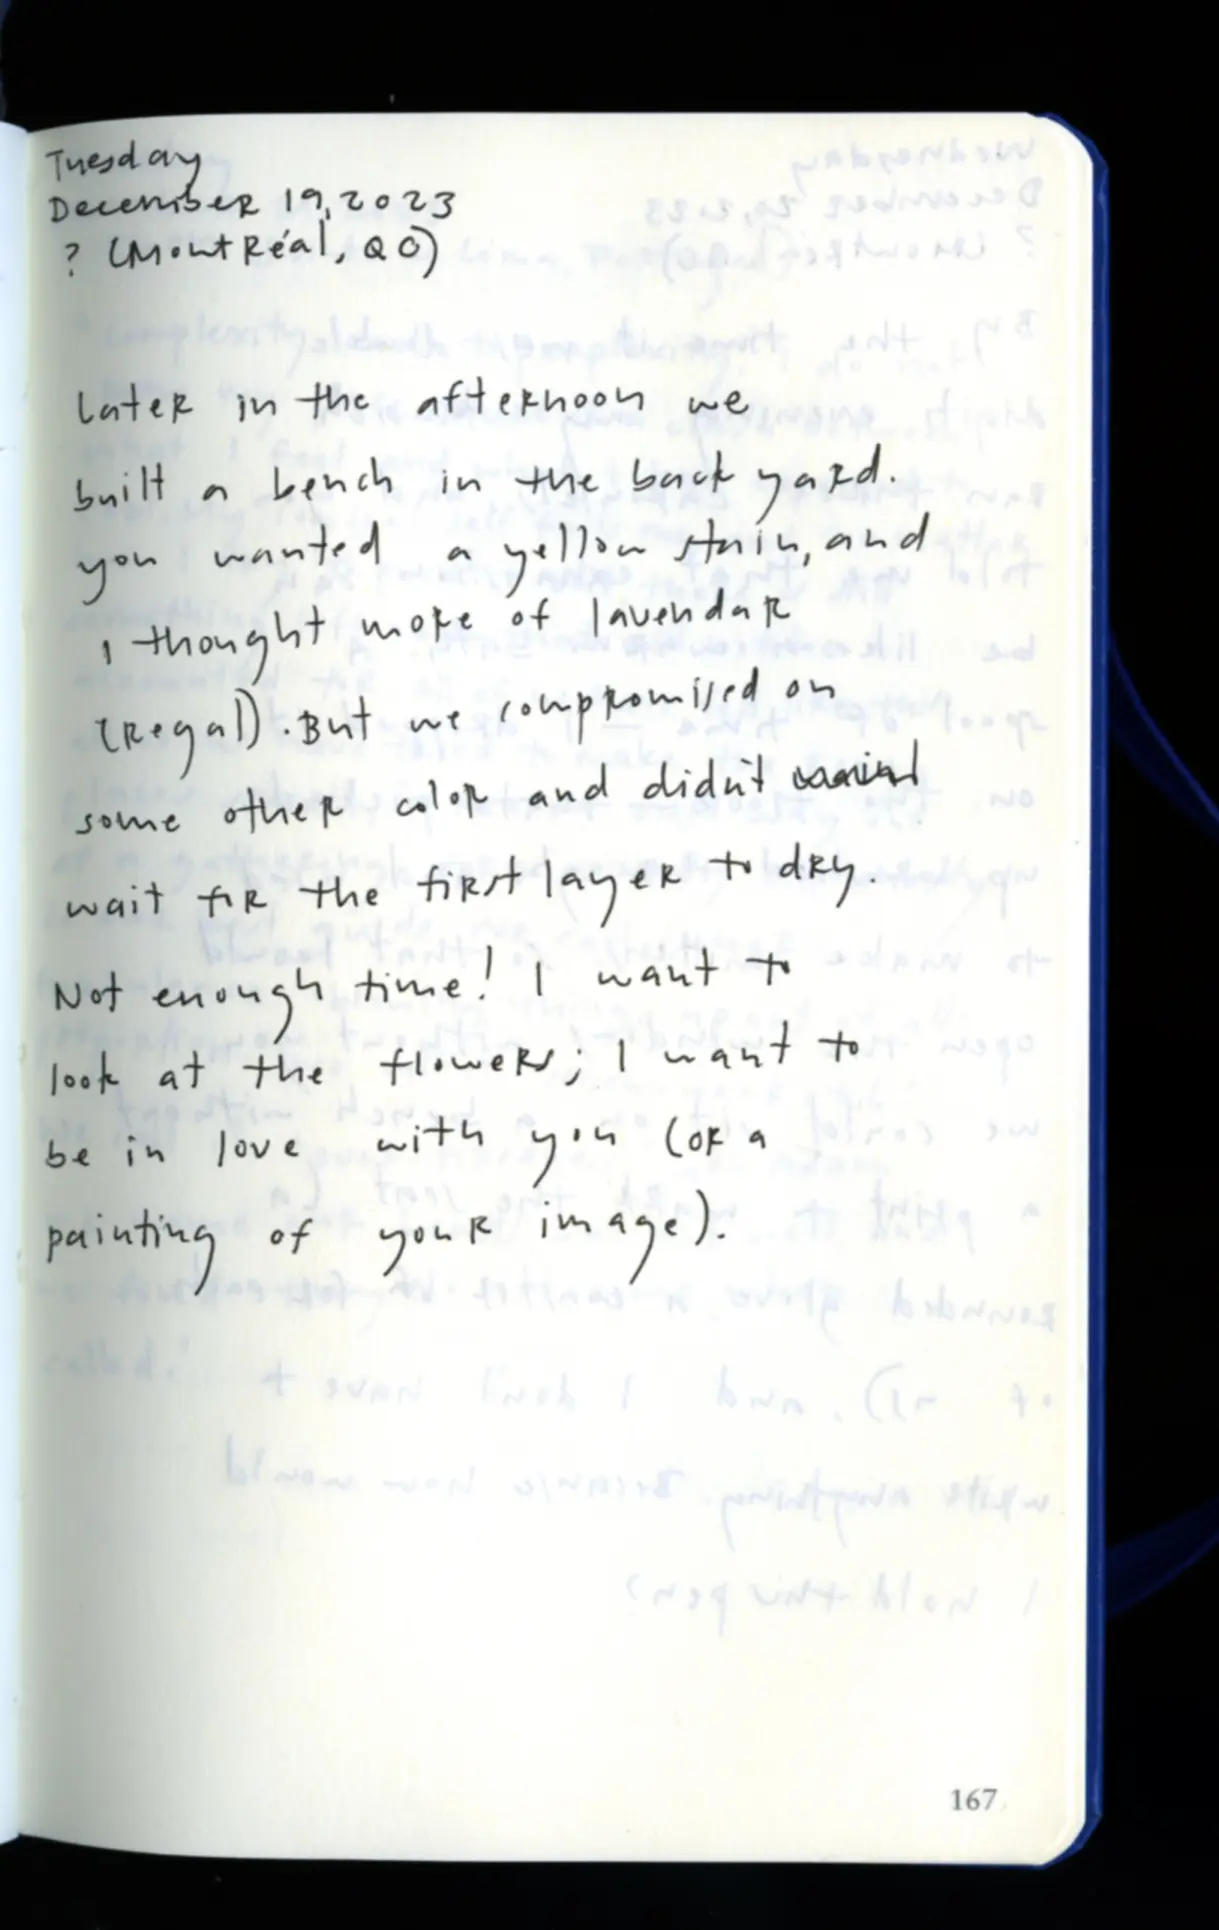 Tuesday
December 19, 2023
? (Montréal, QC)
Later in the afternoon we
built a bench in the back yard.
you wanted a yellow stain, and
I thought more of lavendar
(regal). But we compromised on
some other color and didn't
wait for the first layer to dry.
Not enough time! I want to
look at the flowers; I want to
be in love with you (or a
painting of your image).
167